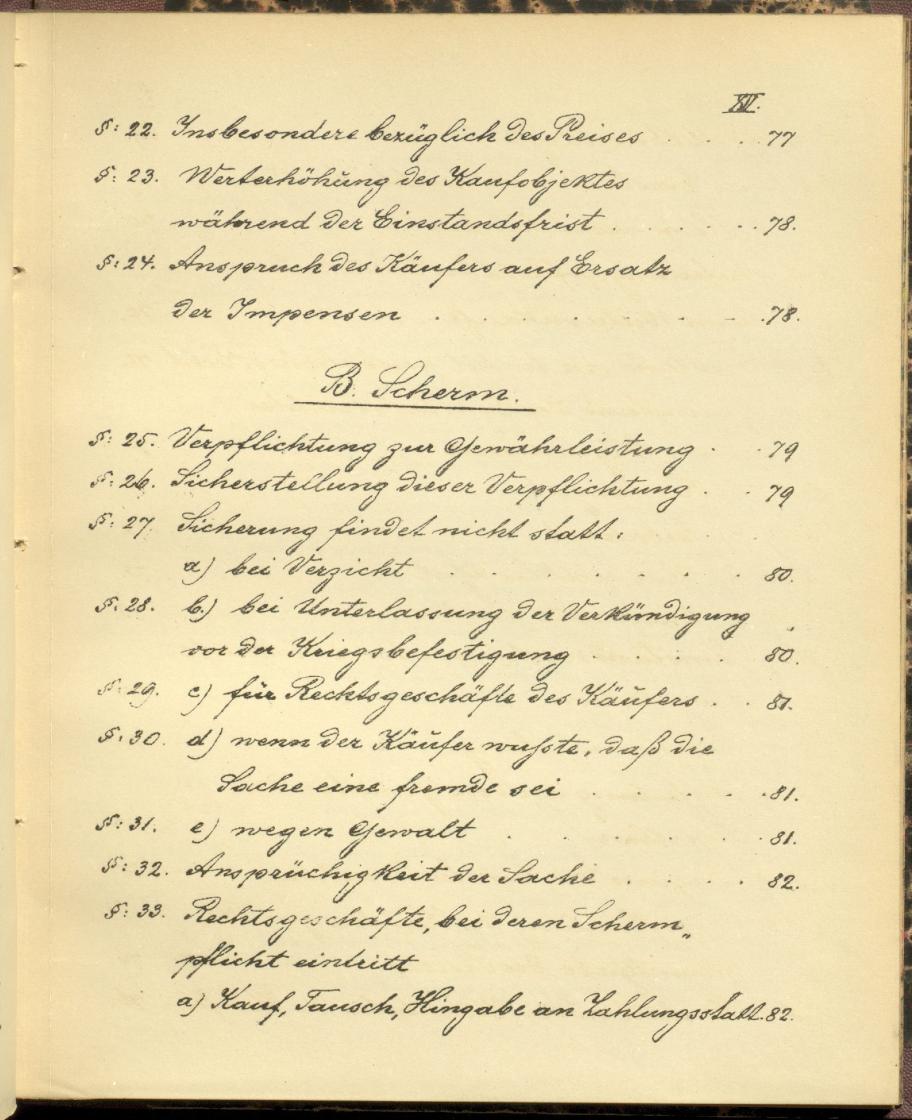 XIII.
§: 22. Insbesondere bezüglich des Preises . . . . 77
§: 23. Werterhöhung des Kaufobjektes
während der Einstandsfrist . . . . . 78.
§: 24. Anspruch des Käufers auf Ersatz
der Impensen . . . . . . . 78.
B. Scherm.
§: 25. Verpflichtung zur Gewährleistung . . 79
§: 26. Sicherstellung dieser Verpflichtung . . 79
§: 27. Sicherung findet nicht statt:
a) bei Verzicht . . . . . . . 80.
§: 28. b.) bei Unterlassung der Verkündigung
vor der Kriegsbefestigung . . . . 80.
§: 29. c) für Rechtsgeschäfte des Käufers . . 81.
§: 30. d) wenn der Käufer wußte, daß die
Sache eine fremde sei . . . . . 81.
§: 31. e) wegen Gewalt . . . . . . 81.
§: 32. Ansprüchigkeit der Sache . . . . 82.
§: 33. Rechtsgeschäfte, bei deren Scherm„
pflicht eintritt
a) Kauf, Tausch, Hingabe an Zahlungsstatt. 82.